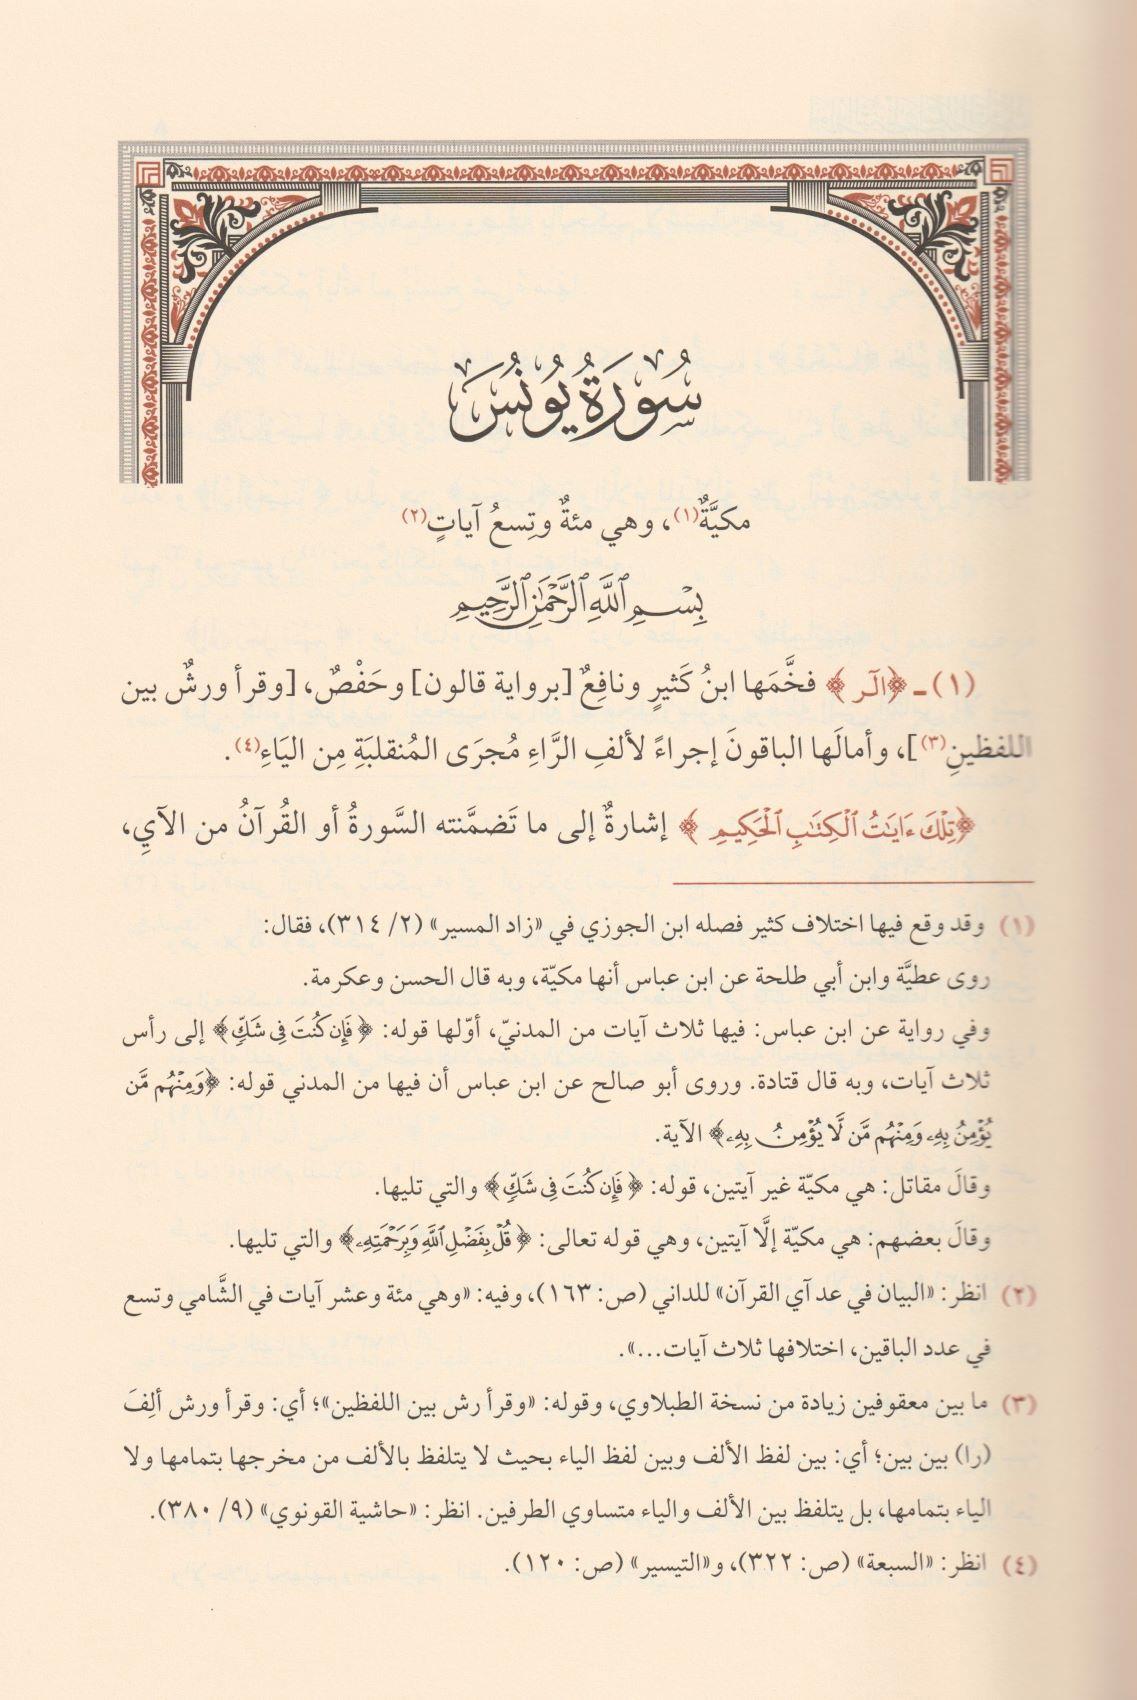 سُورَةُ يُونُسَ
مكيَّةٌ(١)، وهي مئةٌ وتِسعُ آياتٍ(٢)
بِسْمِ ٱللَّهِ ٱلرَّحْمَٰنِ ٱلرَّحِيمِ
(١) ـ ﴿الٓر﴾ فخَّمَها ابنُ كَثيرٍ ونافِعٌ [برواية قالون] وحَفْصٌ، [وقرأ ورشٌ بين
اللفظينِ(٣)]، وأمالَها الباقونَ إجراءً لألفِ الرَّاءِ مُجرَى المُنقلبَةِ مِن اليَاءِ(٤).
﴿تِلْكَ ءَايَٰتُ ٱلْكِتَٰبِ ٱلْحَكِيمِ﴾ إشارةٌ إلى ما تَضمَّنته السَّورةُ أو القُرآنُ من الآيِ،
(١) وقد وقع فيها اختلاف كثير فصله ابن الجوزي في «زاد المسير» (٢/ ٣١٤)، فقال:
روى عطيَّة وابن أبي طلحة عن ابن عباس أنها مكيّة، وبه قال الحسن وعكرمة.
وفي رواية عن ابن عباس: فيها ثلاث آيات من المدنيّ، أوّلها قوله: ﴿فَإِن كُنتَ فِى شَكٍّ﴾ إلى رأس
ثلاث آيات، وبه قال قتادة. وروى أبو صالح عن ابن عباس أن فيها من المدني قوله: ﴿وَمِنْهُم مَّن
يُؤْمِنُ بِهِۦ وَمِنْهُم مَّن لَّا يُؤْمِنُ بِهِۦ﴾ الآية.
وقالَ مقاتل: هي مكيّة غير آيتين، قوله: ﴿فَإِن كُنتَ فِى شَكٍّ﴾ والتي تليها.
وقالَ بعضهم: هي مكيّة إلَّا آيتين، وهي قوله تعالى: ﴿قُلْ بِفَضْلِ ٱللَّهِ وَبِرَحْمَتِهِۦ﴾ والتي تليها.
(٢) انظر: «البيان في عد آي القرآن» للداني (ص: ١٦٣)، وفيه: «وهي مئة وعشر آيات في الشَّامي وتسع
في عدد الباقين، اختلافها ثلاث آيات...».
(٣) ما بين معقوفين زيادة من نسخة الطبلاوي، وقوله: «وقرأ رش بين اللفظين»؛ أي: وقرأ ورش ألِفَ
(را) بين بين؛ أي: بين لفظ الألف وبين لفظ الياء بحيث لا يتلفظ بالألف من مخرجها بتمامها ولا
الياء بتمامها، بل يتلفظ بين الألف والياء متساوي الطرفين. انظر: «حاشية القونوي» (٩/ ٣٨٠).
(٤) انظر: «السبعة» (ص: ٣٢٢)، و«التيسير» (ص: ١٢٠).